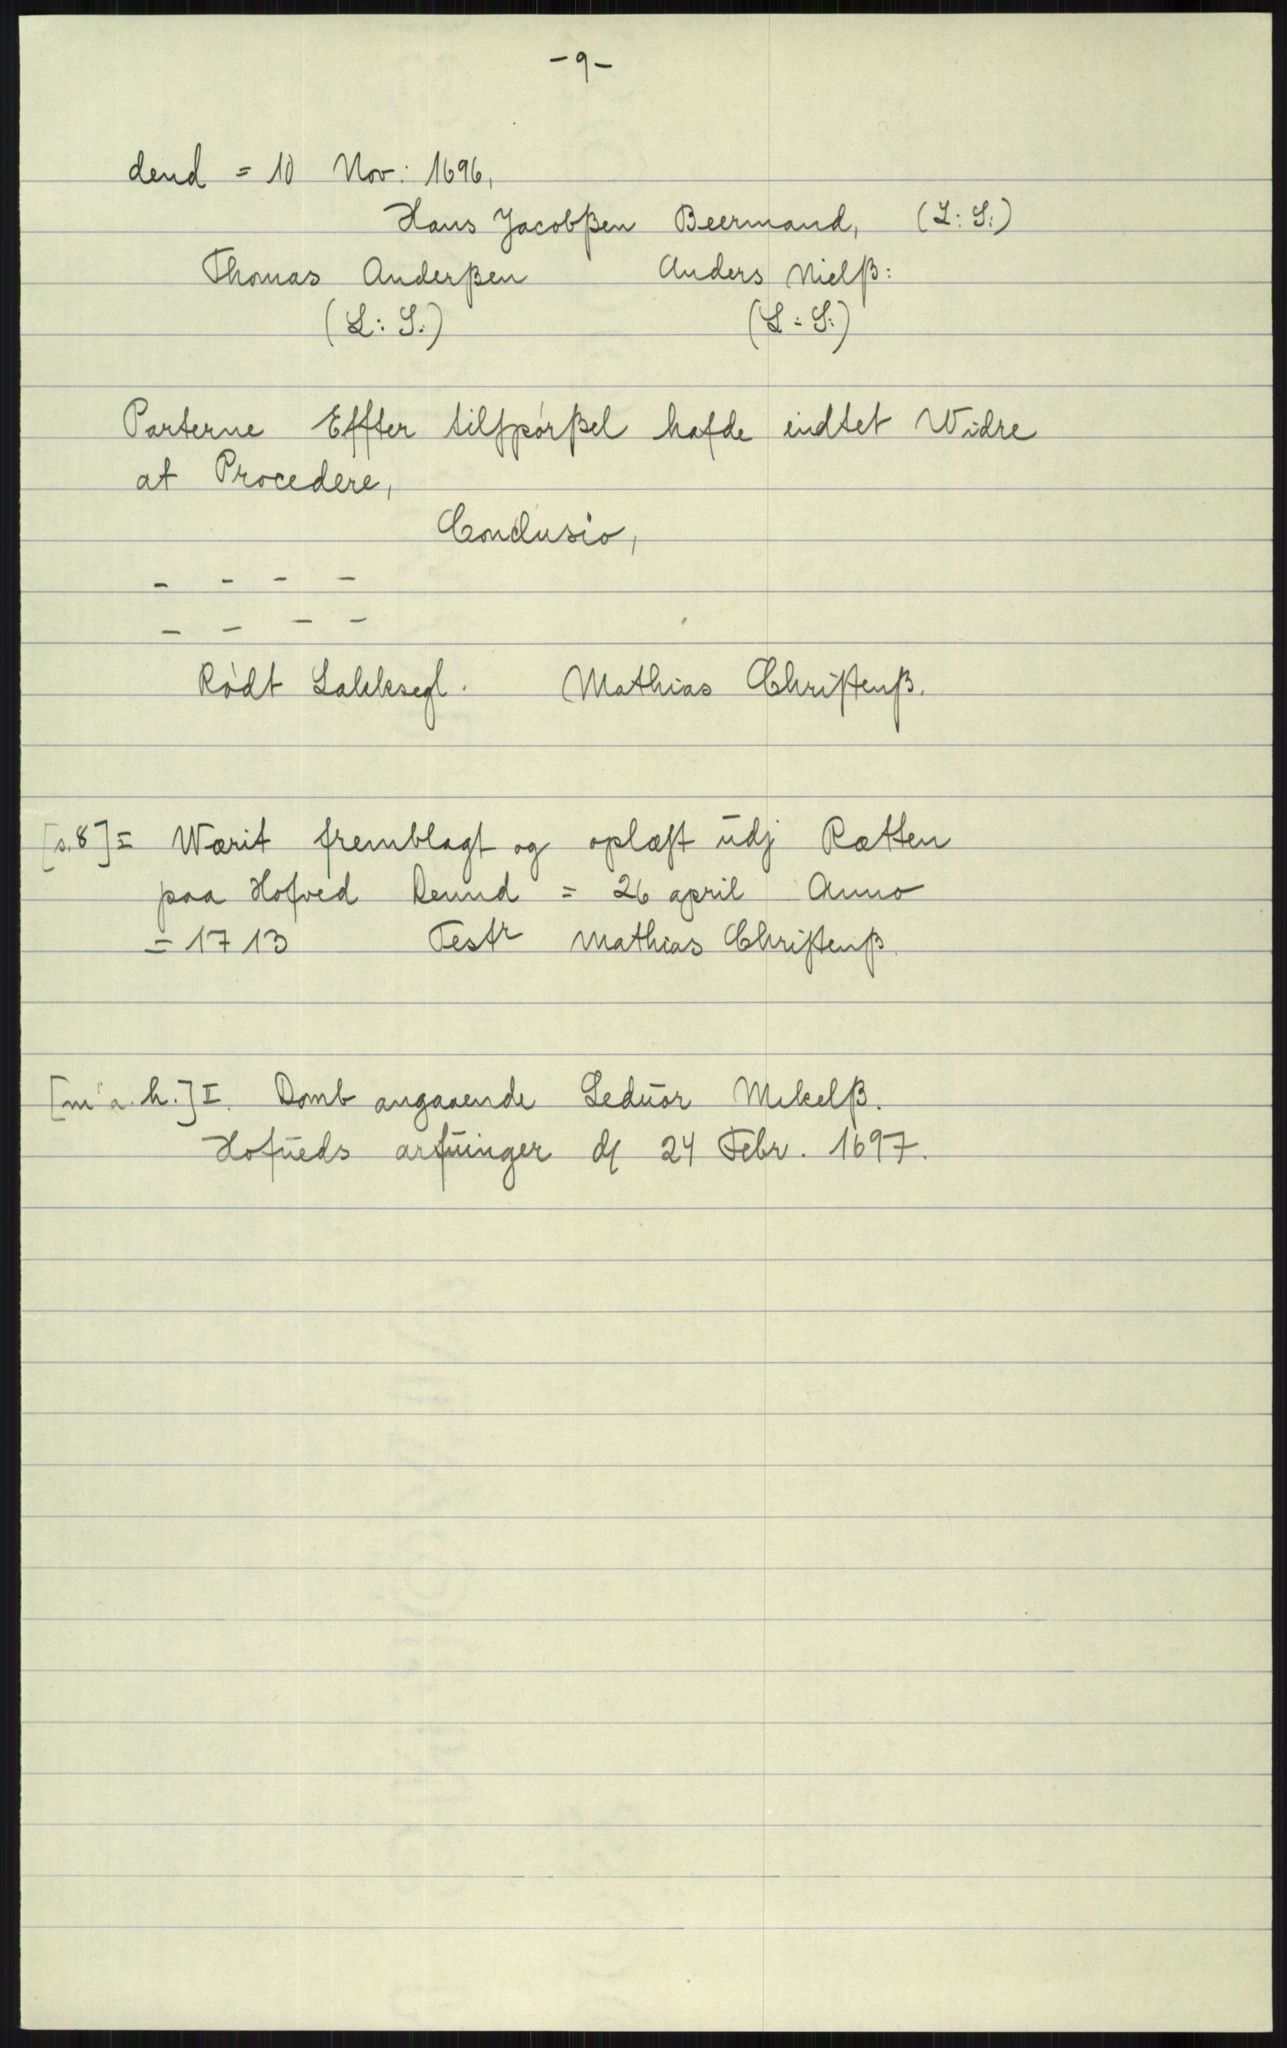 - 9 -
dend = 10 Nov: 1696,
Hans Jacobßen Beermand, (L: S:)
Thomas Anderßen Anders Nielß:
(L: S:) (L: S:)
Parterne Effter tilspørßel hafde indtet Widre
at Procedere,
Conclusio,
- - - -
- - - -
Rødt Lakksegl. Mathias Christenß.
[s. 8] = Wærit fremblagt og oplæst udj Rætten
paa Hofved Dennd = 26 april Anno
= 1713 Testr Mathias Christenß.
[m a. h.] I. Domb angaaende Seduor Mikelß.
Hofueds arfuinger d 24 Febr. 1697.